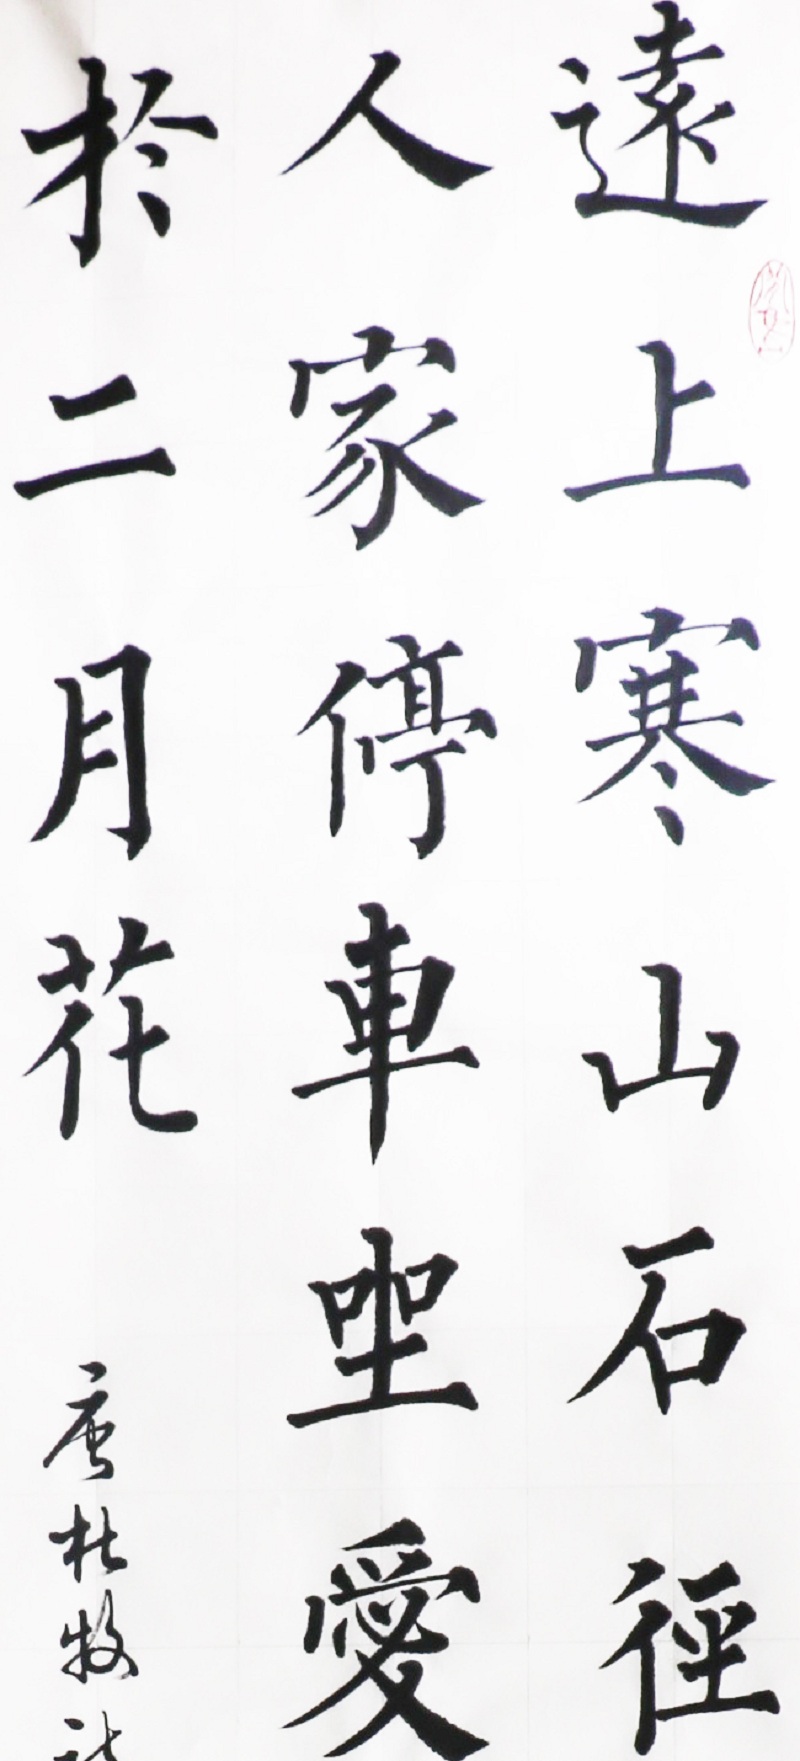 遠上寒山石徑
人家停車坐愛
於二月花
唐杜牧詩